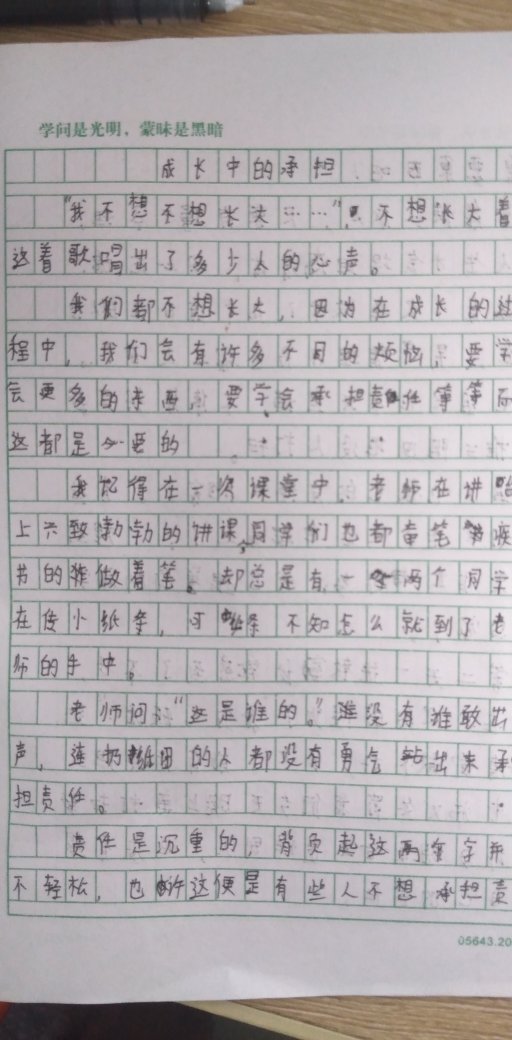 学问是光明，蒙昧是黑暗
成长中的承担
“我不想不想长大……”，不想长大着
这着歌唱出了多少人的心声。
我们都不想长大，因为在成长的过
程中，我们会有许多不同的烦恼，要学
会更多的东西，要学会承担责任等等而
这都是必要的
我记得在一次课堂中，老师在讲台
上兴致勃勃的讲课，同学们也都奋笔疾
书的做着笔。却总是有一两个同学
在传小纸条，可纸条不知怎么就到了老
师的手中。
老师问：“这是谁的。”谁没有谁敢出
声，连扔纸团的人都没有勇气站出来承
担责任。
责任是沉重的，背负起这两个字并
不轻松，也许这便是有些人不想承担责
05643.20